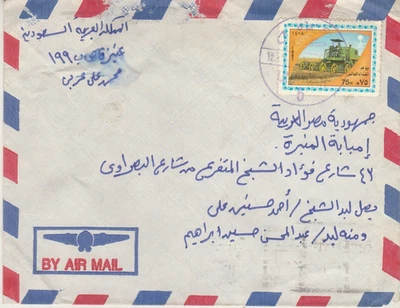 المملكة العربية السعودية
عنيزة ص ب ١٩٩
محمد على
75 ٧٥
جمهورية مصر العربية
إمبابة المنيرة
٤٦ شارع فؤاد الشيخ المتفرع من شارع البصراوى
يصل ليد الشيخ / أحمد حسنين على
ومنه ليد / عبد المحسن حسين ابراهيم
BY AIR MAIL